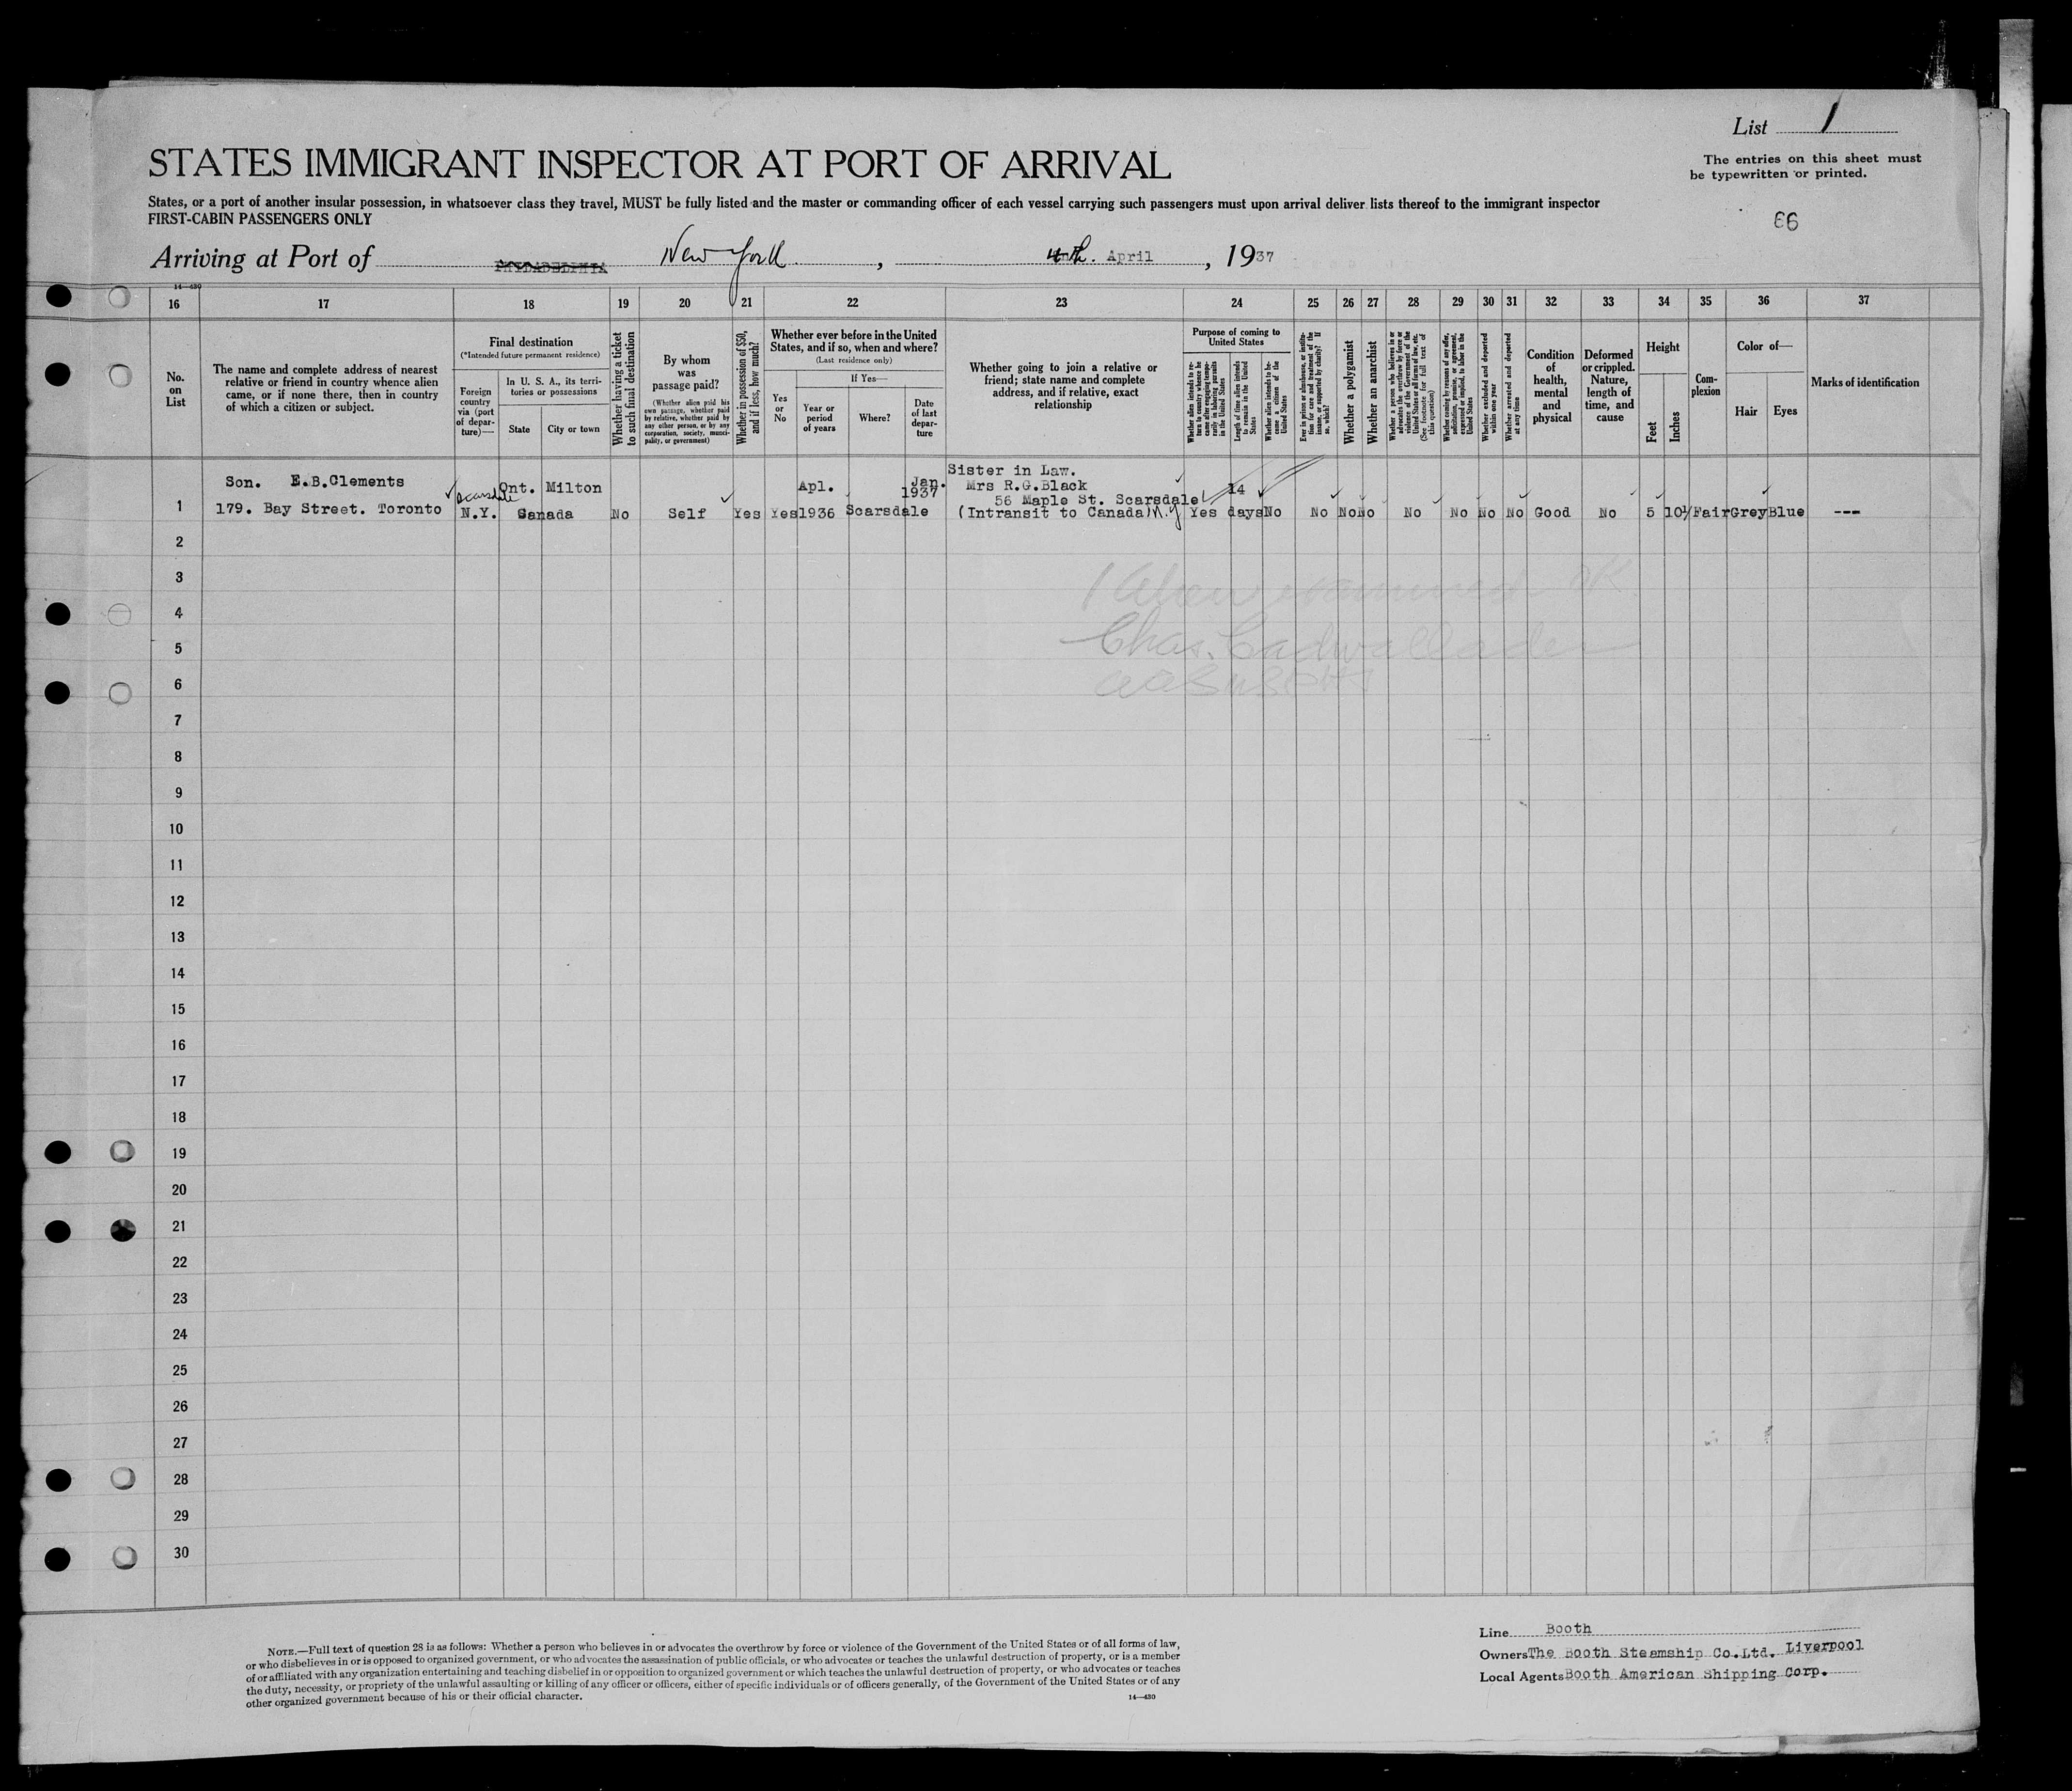 List 1
The entries on this sheet must
be typewritten or printed.
STATES IMMIGRANT INSPECTOR AT PORT OF ARRIVAL
States, or a port of another insular possession, in whatsoever class they travel, MUST be fully listed and the master or commanding officer of each vessel carrying such passengers must upon arrival deliver lists thereof to the immigrant inspector
FIRST-CABIN PASSENGERS ONLY
66
Arriving at Port of PHILADELPHIA New York, April, 1937
14-430
16 17 18 19 20 21 22 23 24 25 26 27 28 29 30 31 32 33 34 35 36 37
No. on List
The name and complete address of nearest
relative or friend in country whence alien
came, or if none there, then in country
of which a citizen or subject.
Final destination
(*Intended future permanent residence)
Foreign country via (port of departure)—
In U. S. A., its territories or possessions
State
City or town
Whether having a ticket to such final destination
By whom was passage paid?
(Whether alien paid his own passage, whether paid by relative, whether paid by any other person, or by any corporation, society, municipality, or government)
Whether in possession of $50, and if less, how much?
Whether ever before in the United States, and if so, when and where?
(Last residence only)
Yes or No
If Yes—
Year or period of years
Where?
Date of last departure
Whether going to join a relative or
friend; state name and complete
address, and if relative, exact
relationship
Purpose of coming to United States
Whether alien intends to return to country whence he came after engaging temporarily in laboring pursuits in the United States
Length of time alien intends to remain in the United States
Whether alien intends to become a citizen of the United States
Ever in prison or almshouse, or institution for care and treatment of the insane, or supported by charity? If so, which?
Whether a polygamist
Whether an anarchist
Whether a person who believes in or advocates the overthrow by force or violence of the Government of the United States or all forms of law, etc. (See footnote for full text of this question)
Whether coming by reasons of any offer, solicitation, promise, or agreement, expressed or implied, to labor in the United States
Whether excluded and deported within one year
Whether arrested and deported at any time
Condition of health, mental and physical
Deformed or crippled. Nature, length of time, and cause
Height
Feet
Inches
Complexion
Color of—
Hair
Eyes
Marks of identification
Son. E.B.Clements Scarsdale Ont. Milton Apl. Jan. 1937 Sister in Law.
Mrs R.G.Black
56 Maple St. Scarsdale 14
1 179. Bay Street. Toronto N.Y. Canada No Self Yes Yes 1936 Scarsdale (Intransit to Canada) N.Y. Yes days No No No No No No No No Good No 5 10½ Fair Grey Blue ---
2
3
1 Alien examined OK
4
5
Chas. Cadwallader
6
7
8
9
10
11
12
13
14
15
16
17
18
19
20
21
22
23
24
25
26
27
28
29
30
NOTE.—Full text of question 28 is as follows: Whether a person who believes in or advocates the overthrow by force or violence of the Government of the United States or of all forms of law,
or who disbelieves in or is opposed to organized government, or who advocates the assassination of public officials, or who advocates or teaches the unlawful destruction of property, or is a member
of or affiliated with any organization entertaining and teaching disbelief in or opposition to organized government or which teaches the unlawful destruction of property, or who advocates or teaches
the duty, necessity, or propriety of the unlawful assaulting or killing of any officer or officers, either of specific individuals or of officers generally, of the Government of the United States or of any
other organized government because of his or their official character.
14-430
Line Booth
Owners The Booth Steamship Co.Ltd. Liverpool
Local Agents Booth American Shipping Corp.